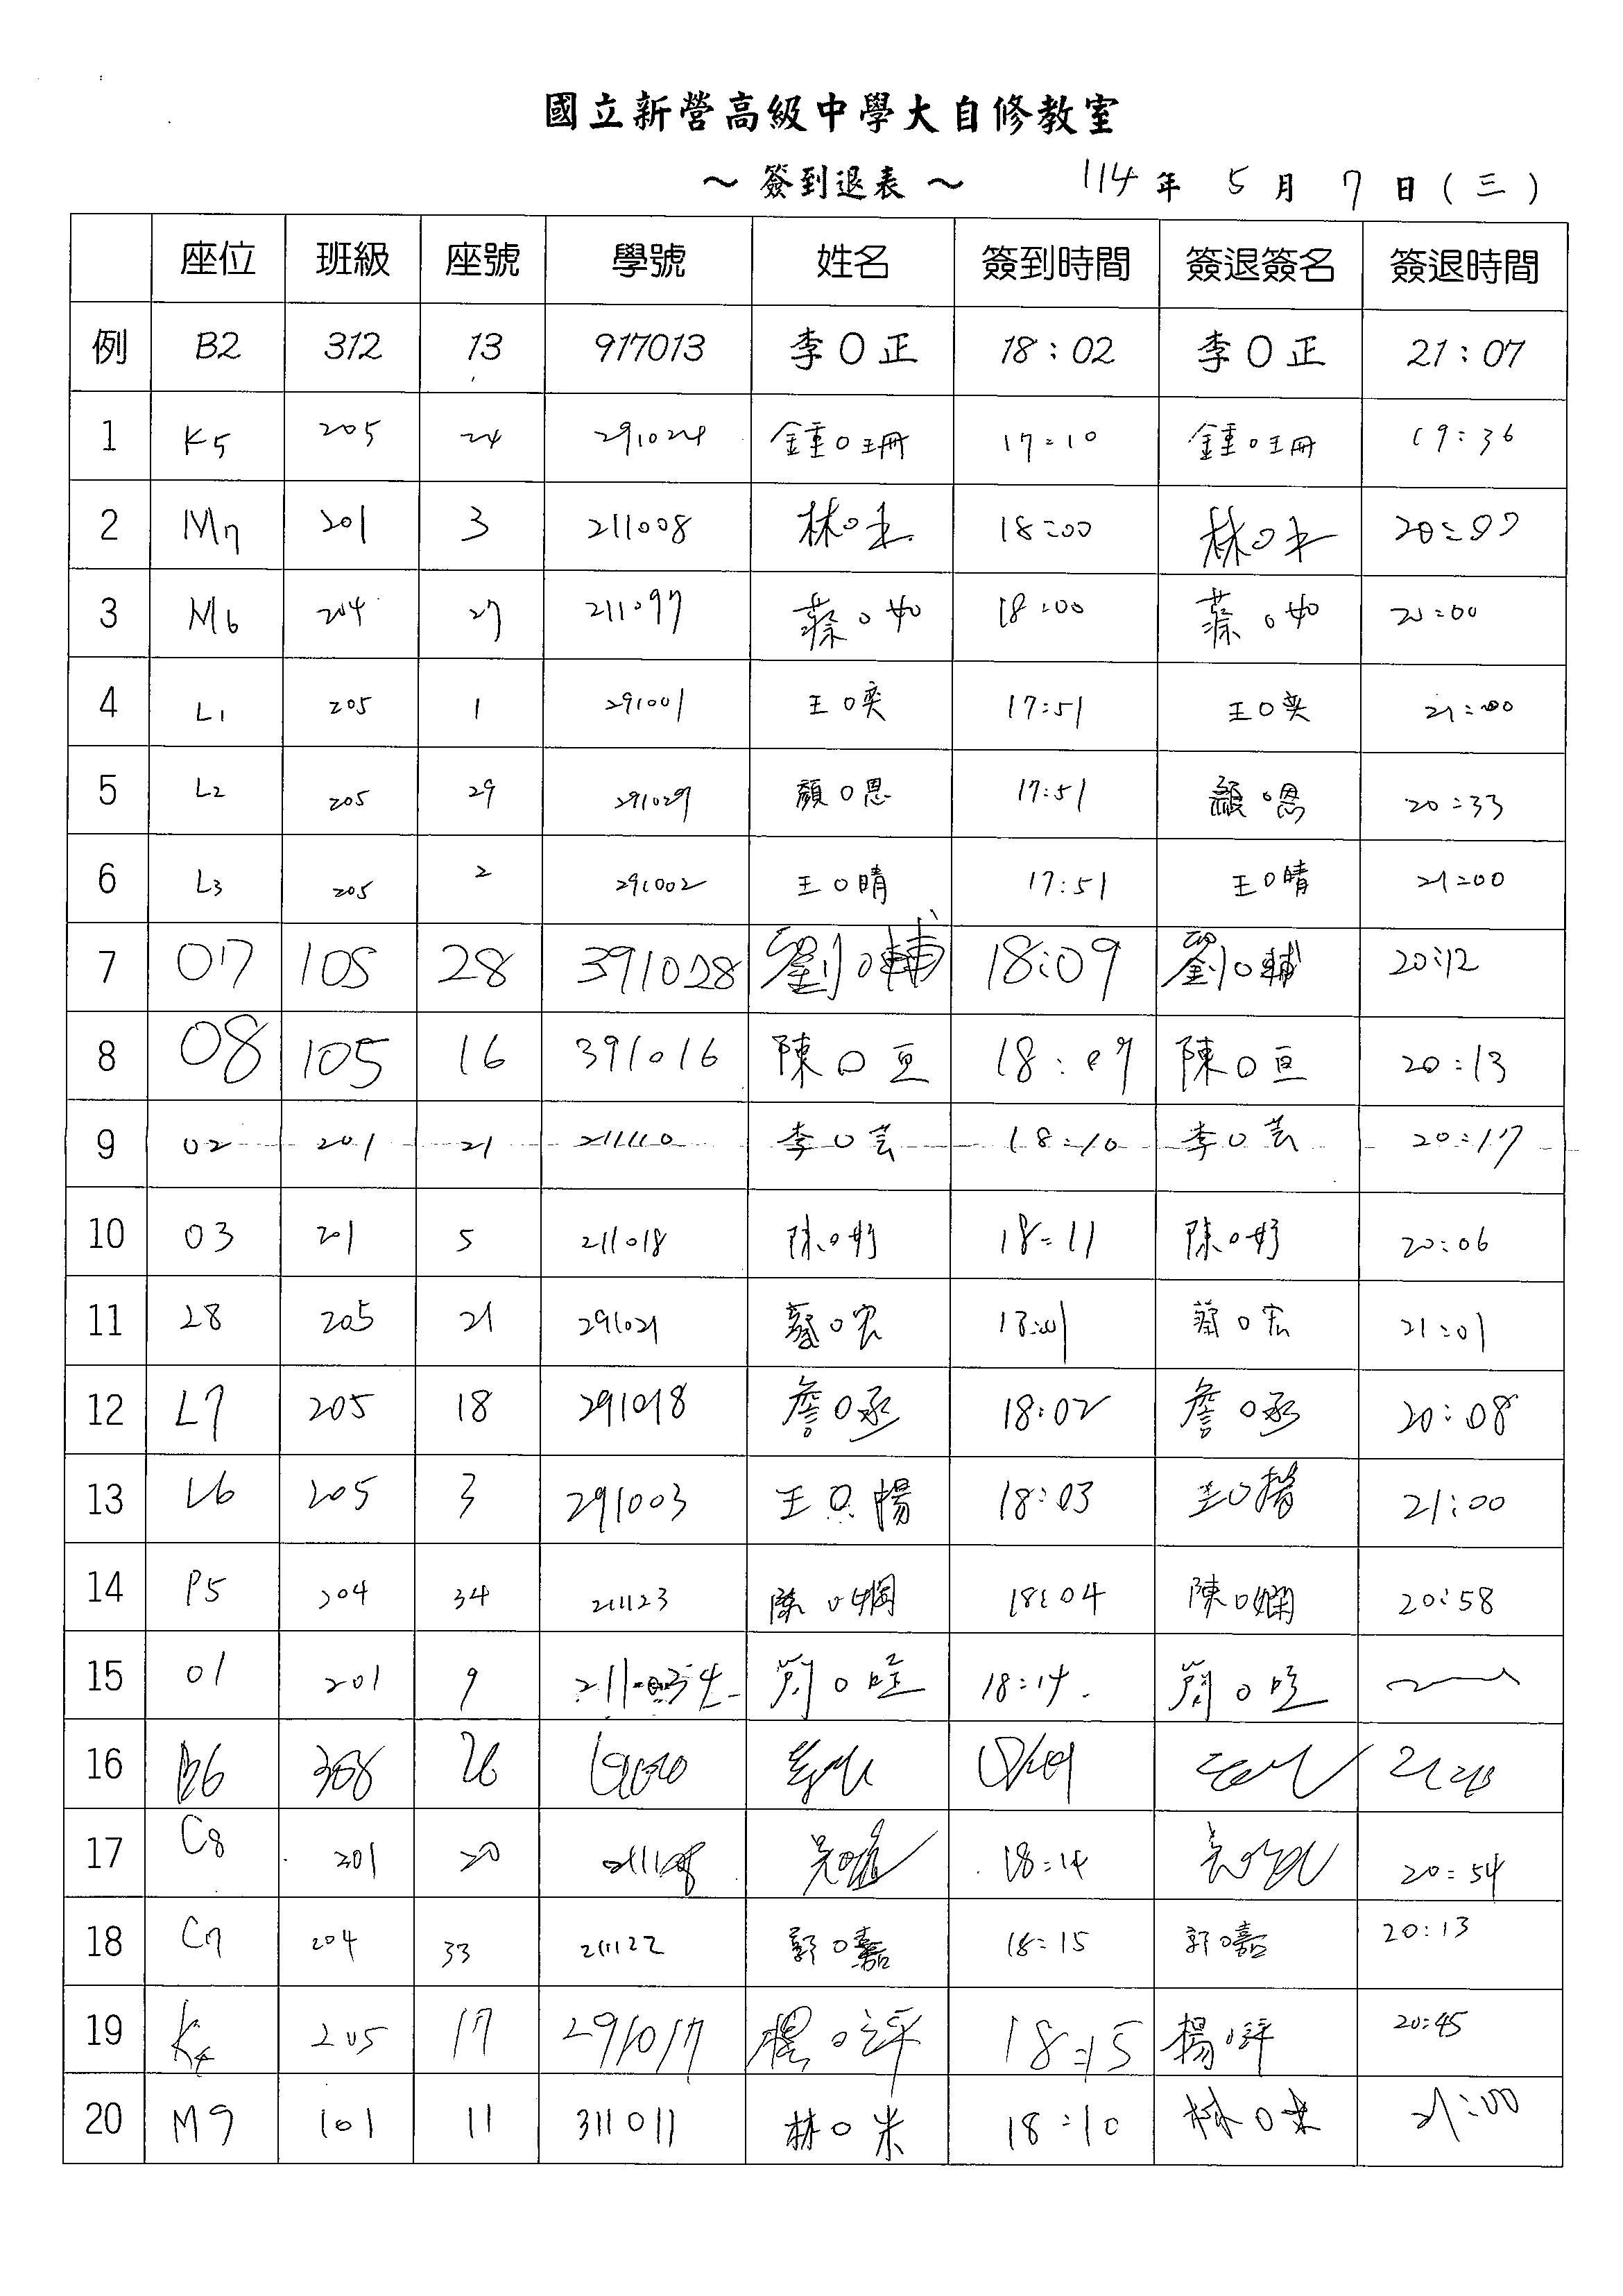 國立新營高級中學大自修教室
～ 簽到退表 ～ 114 年 5 月 7 日 ( 三 )
座位 班級 座號 學號 姓名 簽到時間 簽退簽名 簽退時間
例 B2 312 13 917013 李O正 18:02 李O正 21:07
1 K5 205 24 291024 鍾O珊 17:10 鍾O珊 19:36
2 M7 201 3 211008 林O 18:00 林O
3 M6 204 27 211097 蔡O如 18:00 蔡O如 21:00
4 L1 205 1 291001 王O奕 17:51 王O奕 21:00
5 L2 205 29 291029 顏O恩 17:51 顏O恩 20:33
6 L3 205 2 291002 王O晴 17:51 王O晴 21:00
7 07 105 28 391028 劉O輔 18:09 劉O輔 20:12
8 08 105 16 391016 陳O亘 18:09 陳O亘 20:13
9 02 201 21 211110 李O芸 18:10 李O芸 20:17
10 03 201 5 211018 陳O妤 18:11 陳O妤 20:06
11 28 205 21 291021 蔡O宏 蔡O宏 21:01
12 L7 205 18 291018 詹O丞 18:02 詹O丞 20:08
13 L6 205 3 291003 王O暢 18:03 王O暢 21:00
14 P5 204 34 211123 陳O嫻 18:04 陳O嫻 20:58
15 01 201 9 18:14
16 B6 308 26
17 C8 201 20 吳O 18:14 20:54
18 C7 204 33 211122 郭O嘉 18:15 郭O嘉 20:13
19 K4 205 17 291017 楊O評 18:15 楊O評 20:45
20 M9 101 11 311011 林O米 18:10 林O米 21:00